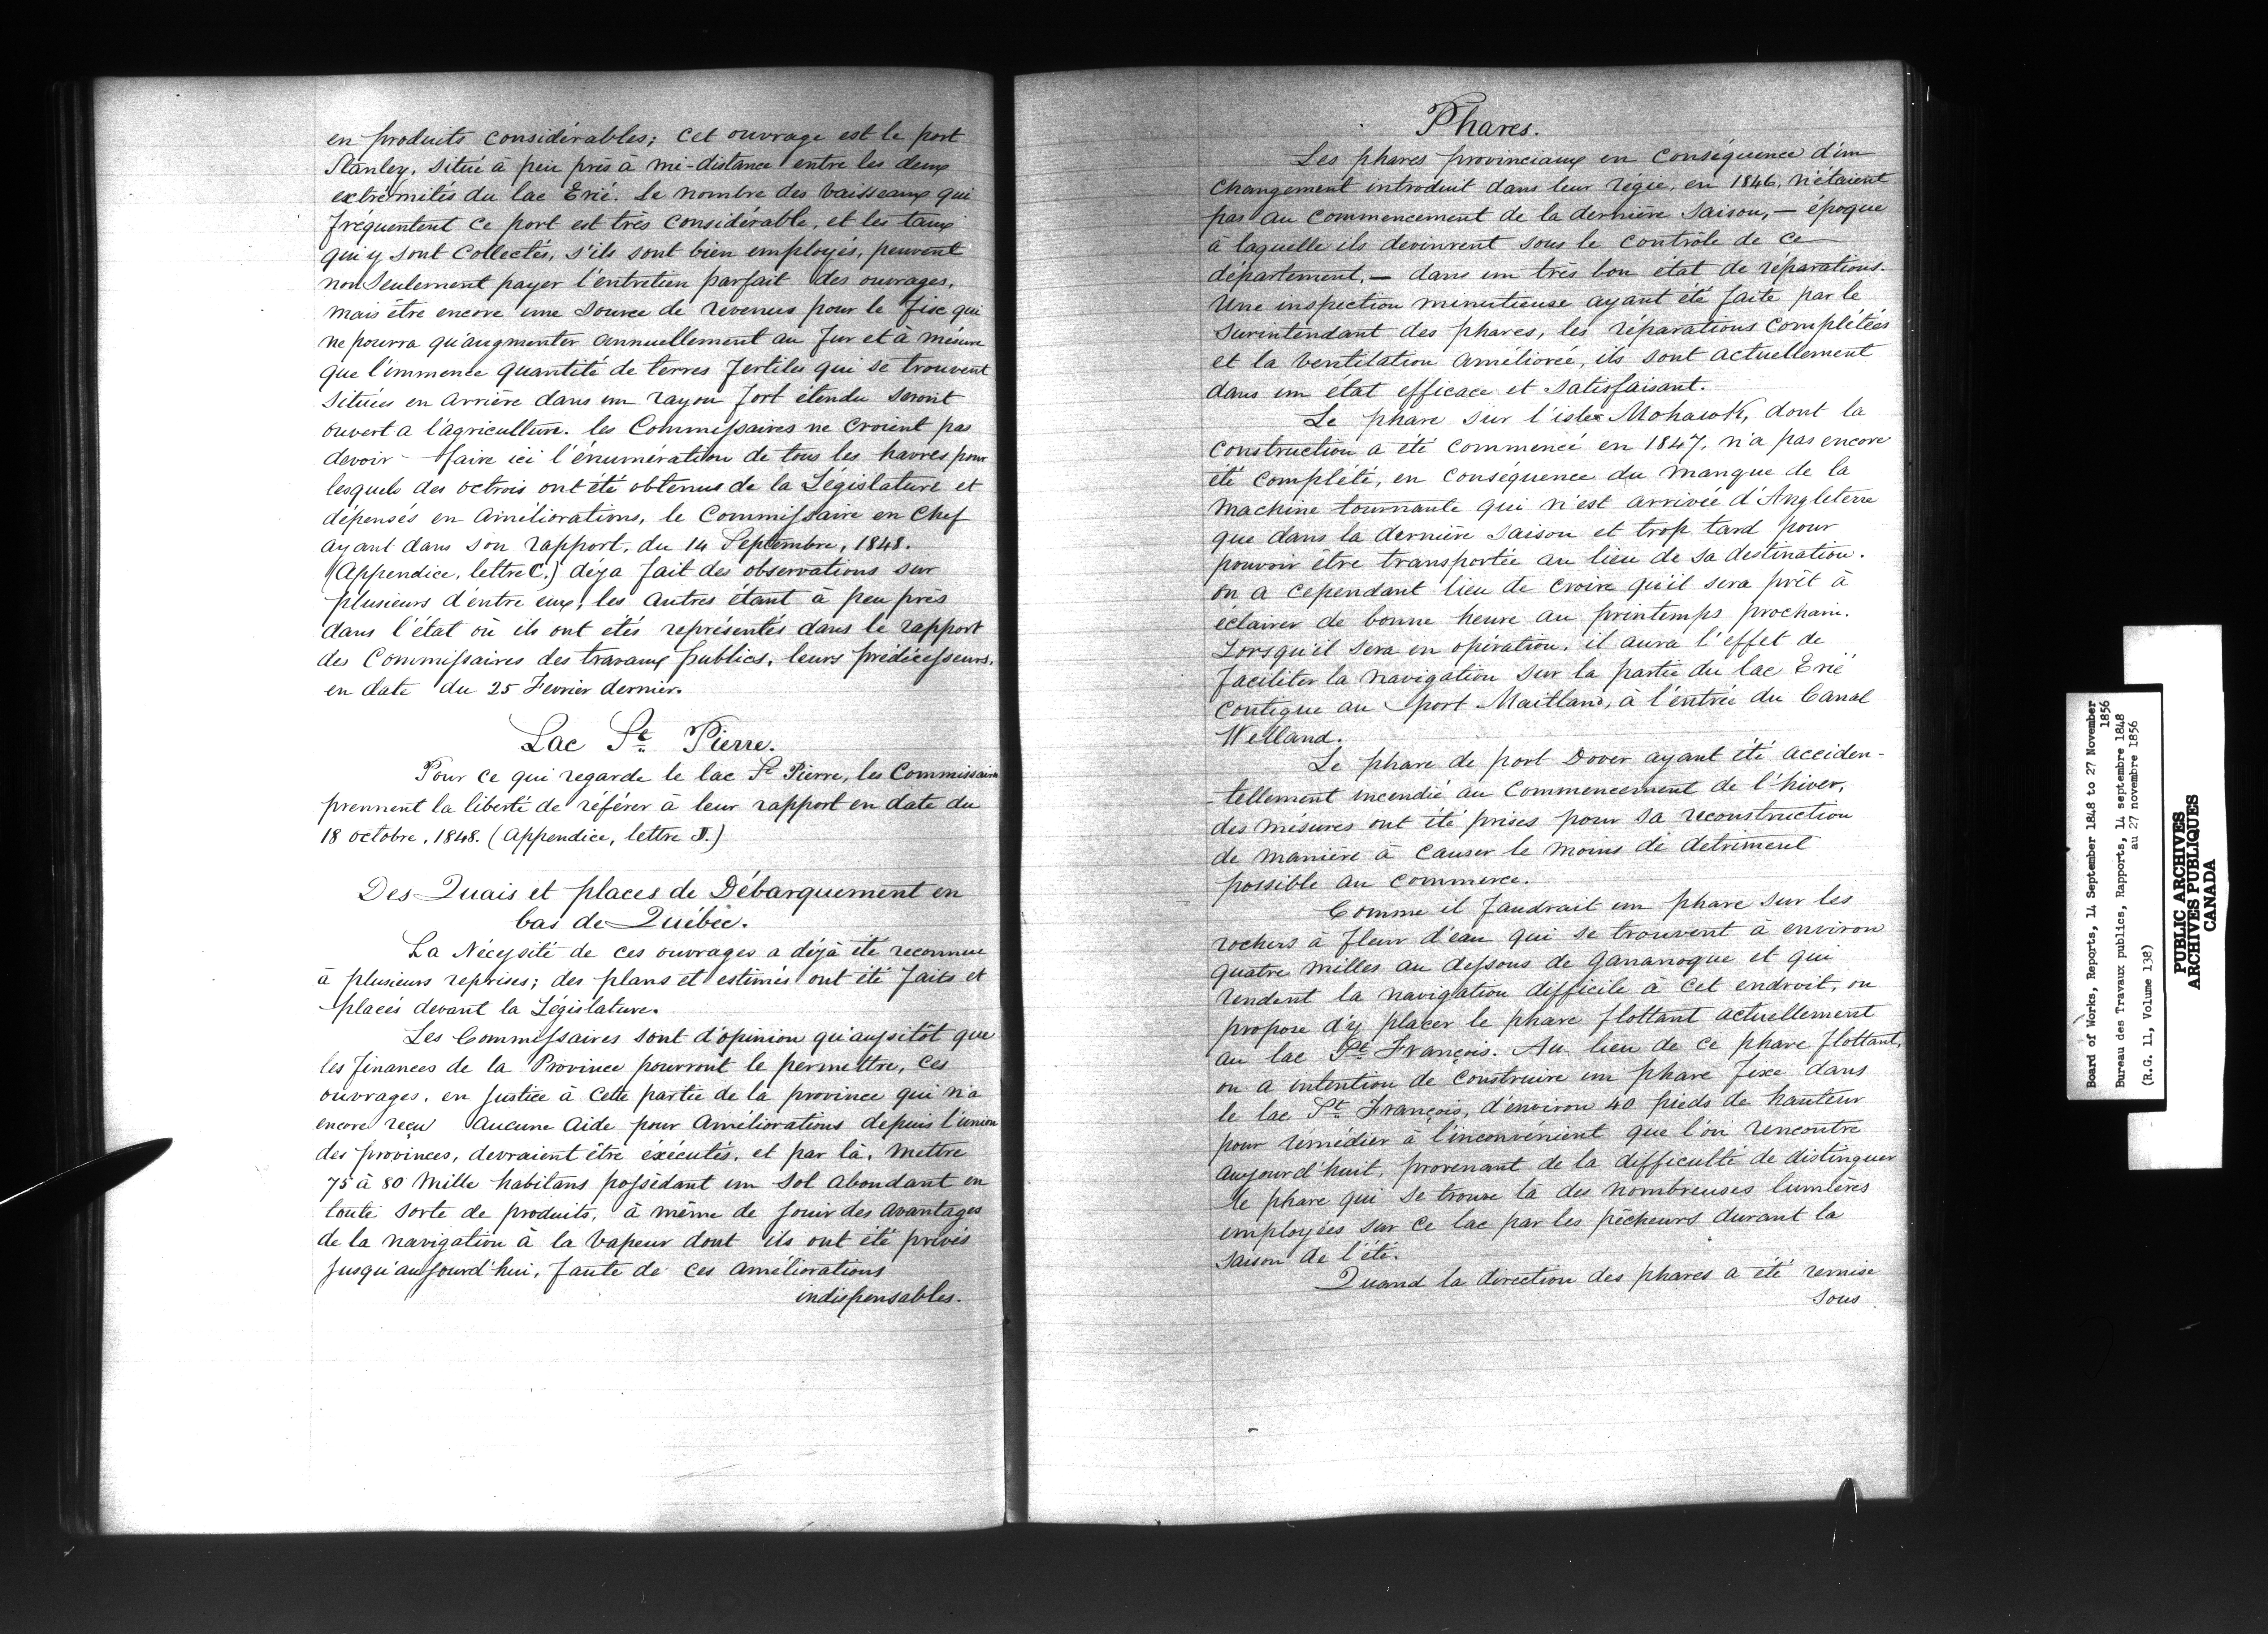 en produits considérables; cet ouvrage est le port
Stanley, situé à peu près à mi-distance entre les deux
extrémités du lac Erié. Le nombre des vaisseaux qui
fréquentent ce port est très considérable, et les taux
qui y sont collectés, s'ils sont bien employés, peuvent
non seulement payer l'entretien parfait des ouvrages,
mais être encore une source de revenus pour le fisc qui
ne pourra qu'augmenter annuellement au fur et à mésure
que l'immence quantité de terres fertiles qui se trouvent
situées en arrière dans un rayon fort étendu seront
ouvert a l'agriculture. les Commissaires ne croient pas
devoir faire ici l'énumération de tous les havres pour
lesquels des octrois ont été obtenus de la Législature et
dépensés en améliorations, le Commissaire en Chef
ayant dans son rapport, du 14 Septembre, 1848.
(Appendice, lettre C.) déja fait des observations sur
plusieurs d'entre eux; les autres étant à peu près
dans l'état où ils ont etés représentés dans le rapport
des Commissaires des travaux publics, leurs prédécesseurs,
en date du 25 Fevrier dernier.
Lac St. Pierre.
Pour ce qui regarde le lac St Pierre, les Commissaires
prennent la liberté de référer à leur rapport en date du
18 octobre, 1848. (Appendice, lettre J.)
Des Quais et places de Débarquement en
bas de Québec.
La Nécessité de ces ouvrages a déjà été reconnue
à plusieurs reprises; des plans et estimés ont été faits et
placés devant la Législature.
Les Commissaires sont d'opinion qu'aussitôt que
les finances de la Province pourront le permettre, ces
ouvrages, en justice à cette partie de la province qui n'a
encore reçu aucune aide pour améliorations depuis l'union
des provinces, devraient être éxécutés, et par là, mettre
75 à 80 mille habitans possédant un sol abondant en
toute sorte de produits, à même de jouir des avantages
de la navigation à la vapeur dont ils ont été privés
jusqu'aujourd'hui, faute de ces améliorations
indispensables.
Phares.
Les phares provinciaux en conséquence d'un
changement introduit dans leur régie, en 1846, n'étaient
pas au commencement de la dernière saison, — époque
à laquelle ils devinrent sous le contrôle de ce
département, — dans un très bon état de réparations.
Une inspection minutieuse ayant été faite par le
surintendant des phares, les réparations complétées
et la ventilation améliorée, ils sont actuellement
dans un état efficace et satisfaisant.
Le phare sur l'isle Mohawk, dont la
construction a été commencé en 1847, n'a pas encore
été complété, en conséquence du manque de la
machine tournante qui n'est arrivée d'Angleterre
que dans la dernière saison et trop tard pour
pouvoir être transportée au lieu de sa destination.
on a cependant lieu de croire qu'il sera prêt à
éclairer de bonne heure au printemps prochain.
Lorsqu'il sera en opération, il aura l'effet de
faciliter la navigation sur la partie du lac Erié
contigue au port Maitland, à l'entrée du Canal
Welland.
Le phare de port Dover ayant été acciden-
-tellement incendié au commencement de l'hiver,
des mésures ont été prises pour sa reconstruction
de manière à causer le moins de detriment
possible au commerce.
Comme il faudrait un phare sur les
rochers à fleur d'eau qui se trouvent à environ
quatre milles au dessous de Gananoque et qui
rendent la navigation difficile à cet endroit, on
propose d'y placer le phare flottant actuellement
au lac St. François. Au lieu de ce phare flottant,
on a intention de construire un phare fixe dans
le lac St. François, d'environ 40 pieds de hauteur
pour rémédier à l'inconvénient que l'on rencontre
aujourd'huit, provenant de la difficulté de distinguer
le phare qui se trouve là des nombreuses lumières
employées sur ce lac par les pêcheurs durant la
saison de l'été.
Quand la direction des phares a été remise
sous
Board of Works, Reports, 14 September 1848 to 27 November
1856
Bureau des Travaux publics, Rapports, 14 septembre 1848
au 27 novembre 1856
(R.G. 11, Volume 138)
PUBLIC ARCHIVES
ARCHIVES PUBLIQUES
CANADA